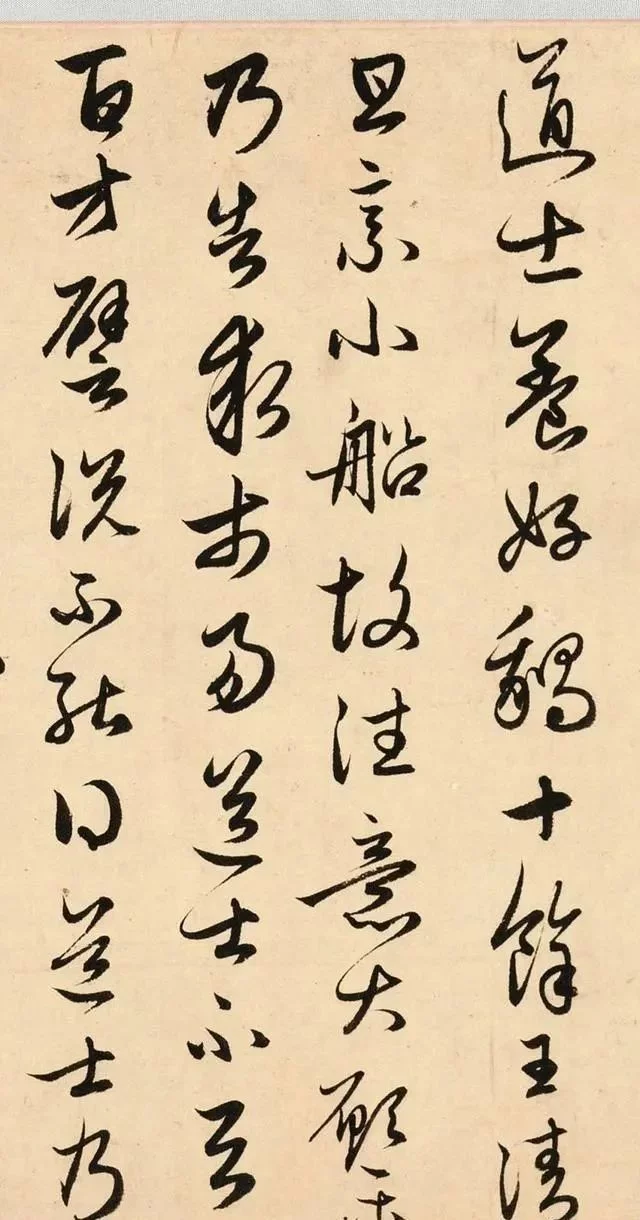 道士養好鵝十餘王清
旦乘小船故往意大願樂
乃告求市易道士不言
百方譬說不能得道士乃